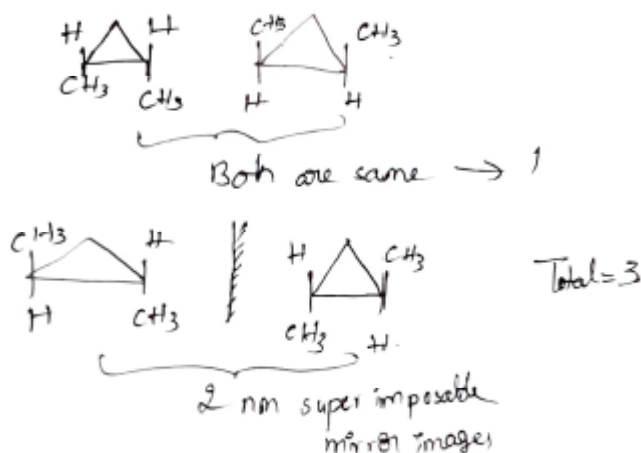 H H CH3 CH3
CH3 CH3 H H
Both are same → 1
CH3 H H CH3
H CH3 CH3 H.
Total = 3
2 nm super imposable
mirror images